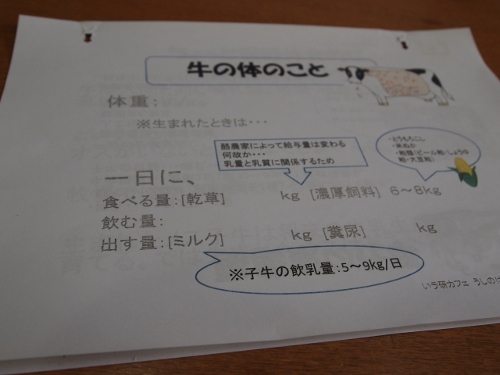 牛の体のこと
体重:
※生まれたときは・・・
酪農家によって給与量は変わる
何故か・・・
乳量と乳質に関係するため
・とうもろこし
・米ぬか
一日に、
食べる量:[乾草] kg [濃厚飼料] 6～8kg
飲む量:
出す量:[ミルク] kg [糞尿] kg
※子牛の飲乳量:5～9kg/日